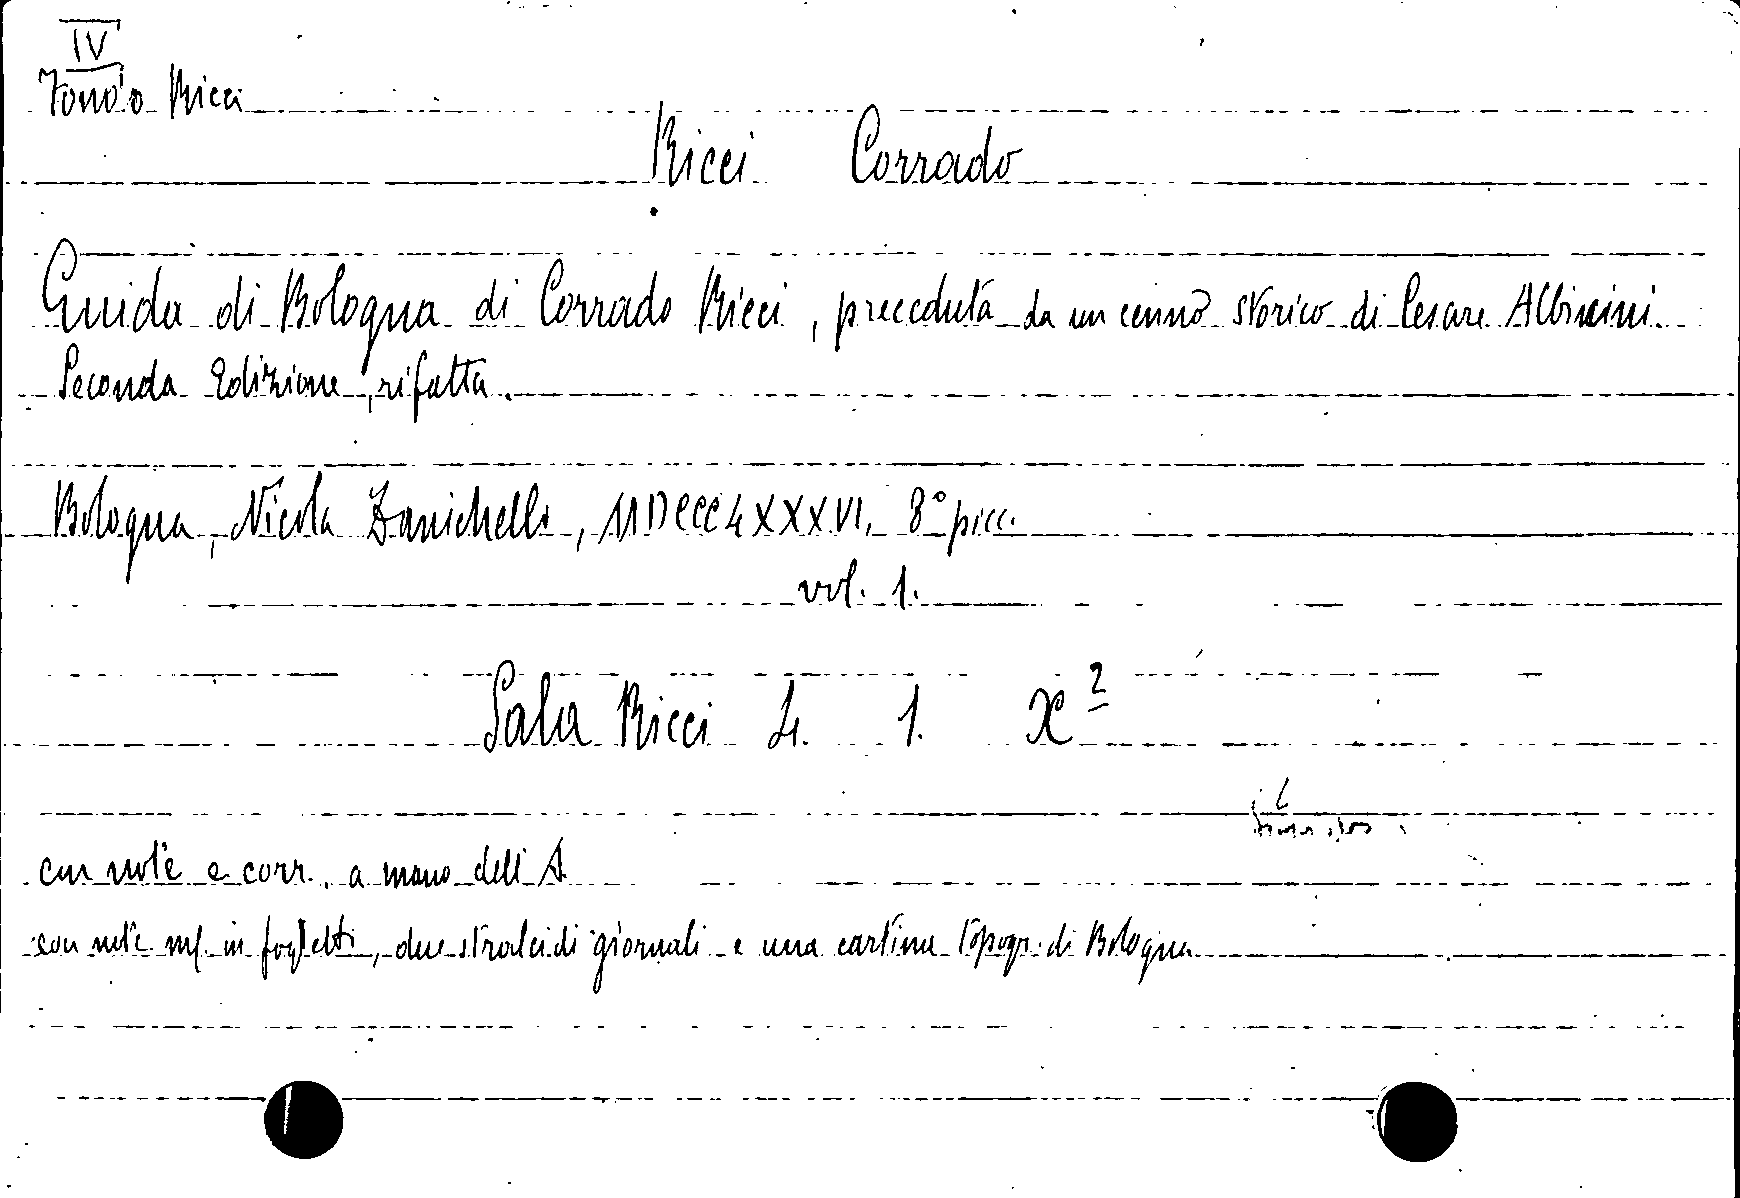 IV
Fondo Ricci
Ricci Corrado
Guida di Bologna di Corrado Ricci, preceduta da un cenno storico di Cesare Albicini.
Seconda Edizione, rifatta.
Bologna, Nicola Zanichelli, MDCCCLXXXVI, 8° picc.
vol. 1.
Sala Ricci 4. 1. X 2
con note e corr. a mano dell'A.
con note ms. in foglietti, due stralci di giornali e una cartina topogr. di Bologna